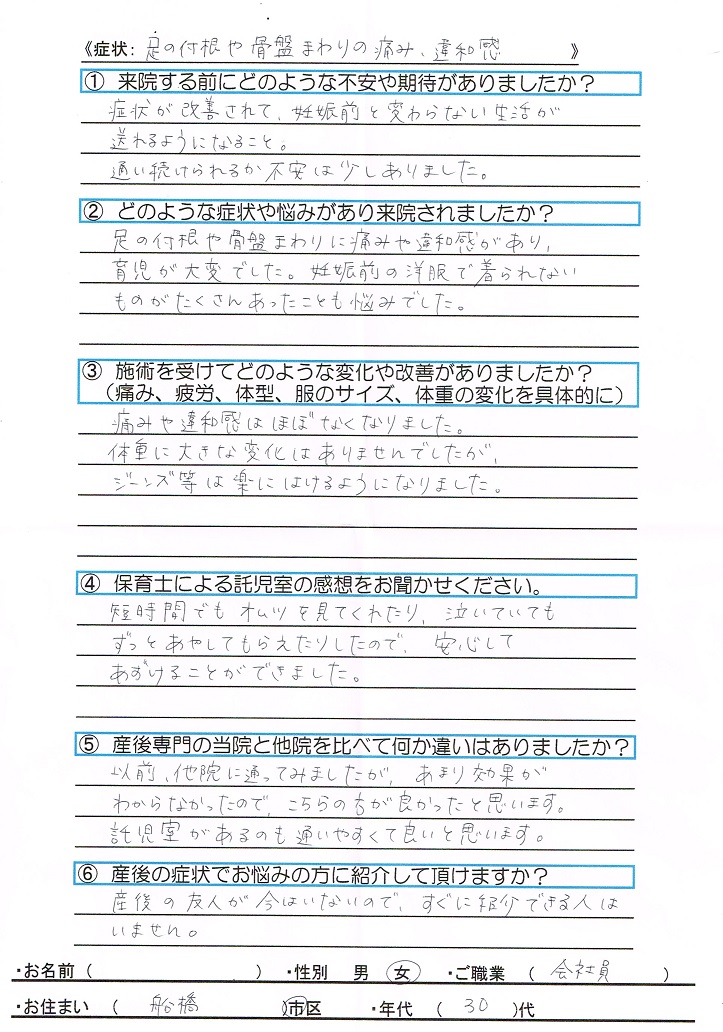 《症状: 足の付根や骨盤まわりの痛み、違和感 》
① 来院する前にどのような不安や期待がありましたか？
症状が改善されて、妊娠前と変わらない生活が
送れるようになること。
通い続けられるか不安は少しありました。
② どのような症状や悩みがあり来院されましたか？
足の付根や骨盤まわりに痛みや違和感があり、
育児が大変でした。妊娠前の洋服で着られない
ものがたくさんあったことも悩みでした。
③ 施術を受けてどのような変化や改善がありましたか？
（痛み、疲労、体型、服のサイズ、体重の変化を具体的に）
痛みや違和感はほぼなくなりました。
体重に大きな変化はありませんでしたが、
ジーンズ等は楽にはけるようになりました。
④ 保育士による託児室の感想をお聞かせください。
短時間でもオムツを見てくれたり、泣いていても
ずっとあやしてもらえたりしたので、安心して
あずけることができました。
⑤ 産後専門の当院と他院を比べて何か違いはありましたか？
以前、他院に通ってみましたが、あまり効果が
わからなかったので、こちらの方が良かったと思います。
託児室があるのも通いやすくて良いと思います。
⑥ 産後の症状でお悩みの方に紹介して頂けますか？
産後の友人が今はいないので、すぐに紹介できる人は
いません。
・お名前（ ） ・性別 男 女 ・ご職業（ 会社員 ）
・お住まい（ 船橋 ）市区 ・年代（ 30 ）代